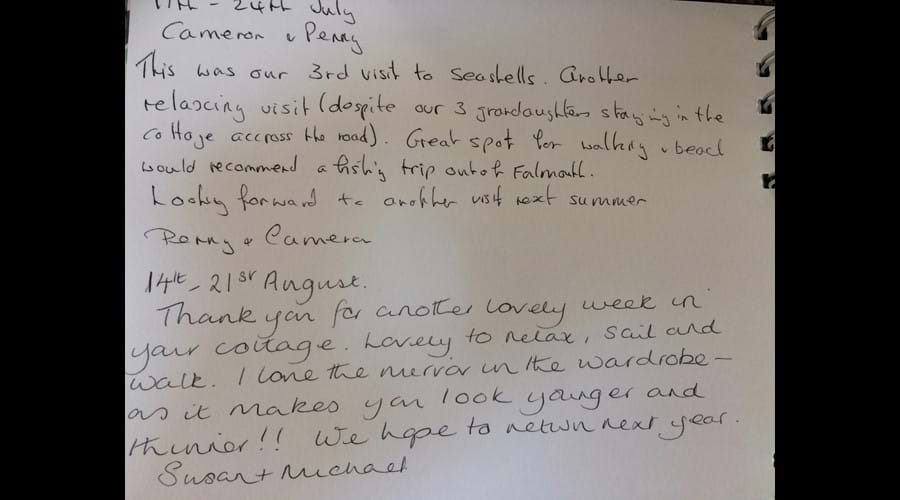 17th - 24th July
Cameron & Penny
This was our 3rd visit to Seashells. Another
relaxcing visit (despite our 3 grandaughters staying in the
cottage accross the road). Great spot for walking & beach
would recommend a fishing trip out of Falmouth.
Looking forward to another visit next summer
Penny & Cameron
14th - 21st August.
Thank you for another lovely week in
your cottage. Lovely to relax, sail and
walk. I love the mirror in the wardrobe -
as it makes you look younger and
thinner!! We hope to return next year.
Susan + Michael